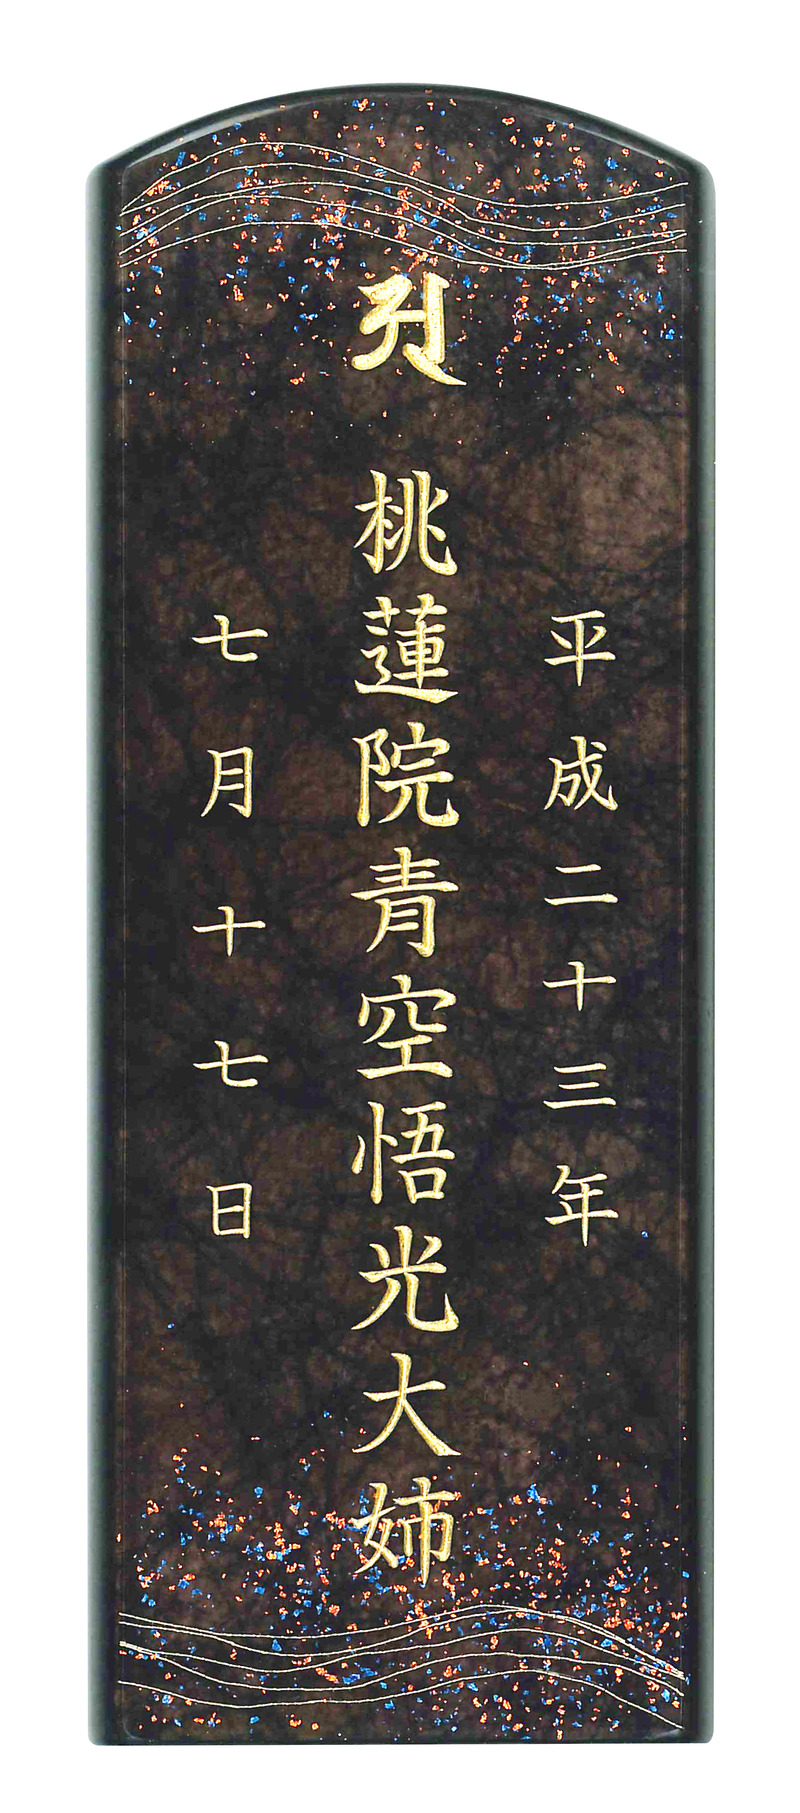 平成二十三年
𑖀 桃蓮院青空悟光大姉
七月十七日